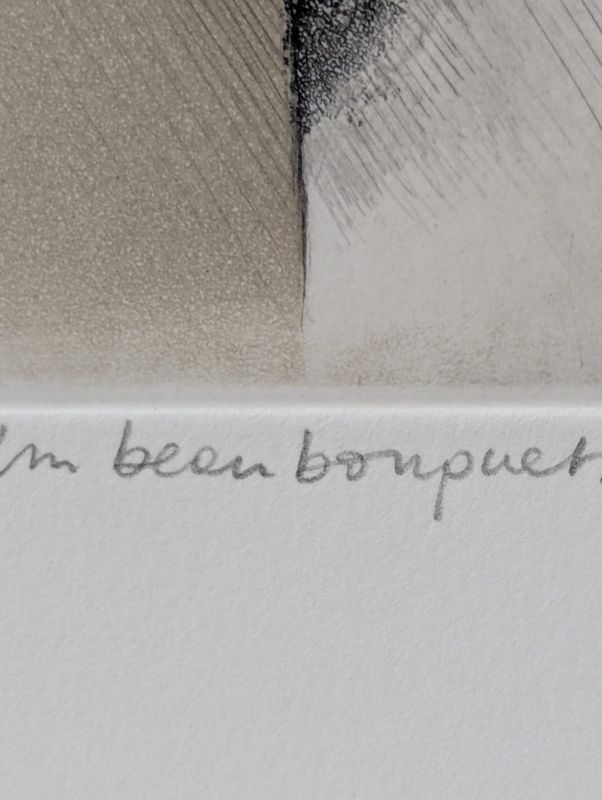 Un beau bouquet.